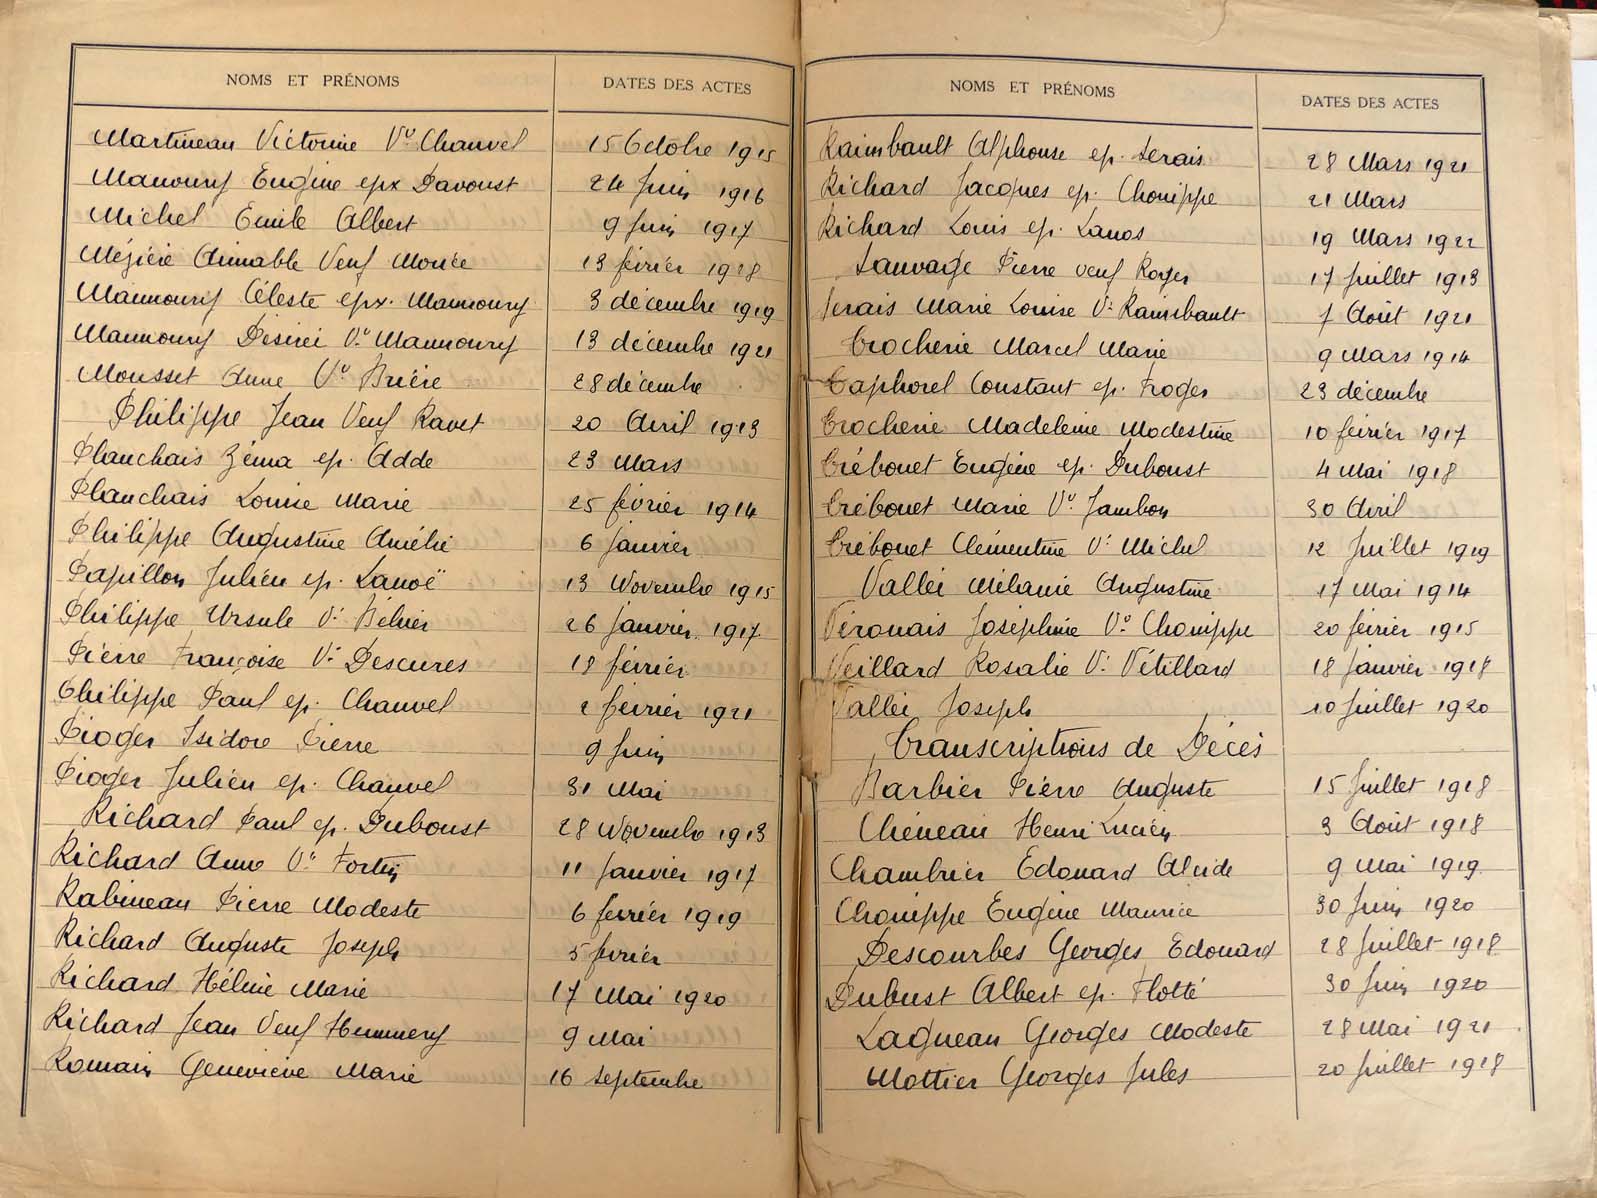 NOMS ET PRÉNOMS DATES DES ACTES
Martineau Victorine Vve Chauvel 15 Octobre 1915
Manoury Eugène epx Davoust 24 Juin 1916
Michel Emile Albert 9 Juin 1917
Mézière Aimable Veuf Morice 13 février 1918
Maunoury Céleste epx. Maunoury 3 décembre 1919
Maunoury Désiré Vf Maunoury 13 décembre 1921
Mousset Anne Vve Brière 28 décembre
Philippe Jean Veuf Ravet 20 Avril 1913
Planchais Zéma ep. Adde 23 Mars
Planchais Louise Marie 25 février 1914
Philippe Augustine Amélie 6 janvier
Papillon Julien ep. Lanoë 13 Novembre 1915
Philippe Ursule Ve Bélier 26 janvier 1917
Pierre Françoise Ve Descures 18 février
Philippe Paul ep. Chauvel 2 février 1921
Pioger Isidore Pierre 9 Juin
Pioger Julien ep. Chauvel 31 Mai
Richard Paul ep. Duboust 28 Novembre 1913
Richard Anne Ve Fortin 11 Janvier 1917
Rabineau Pierre Modeste 6 février 1919
Richard Auguste Joseph 5 février
Richard Hélène Marie 17 Mai 1920
Richard Jean Veuf Hemmery 9 Mai
Romain Geneviève Marie 16 septembre
NOMS ET PRÉNOMS DATES DES ACTES
Raimbault Alphonse ep. Serais 28 Mars 1921
Richard Jacques ep. Chouippe 21 Mars
Richard Louis ep. Lanos 19 Mars 1922
Sauvage Pierre veuf Roger 17 Juillet 1913
Serais Marie Louise Ve Raimbault 7 Août 1921
Trocherie Marcel Marie 9 Mars 1914
Taphorel Constant ep. Froger 23 décembre
Trocherie Madeleine Modestine 10 février 1917
Trébouet Eugène ep. Duboust 4 Mai 1918
Trébouet Marie Vve Jambon 30 Avril
Trébouet Clémentine Ve Michel 12 Juillet 1919
Vallée Mélanie Augustine 17 Mai 1914
Véronais Joséphine Vve Chouippe 20 février 1915
Veillard Rosalie Ve Vétillard 18 janvier 1918
Vallée Joseph 10 Juillet 1920
Transcriptions de Décès
Barbier Pierre Auguste 15 Juillet 1918
Chéneau Henri Lucien 3 Août 1918
Chambrier Edouard Alcide 9 Mai 1919
Chouippe Eugène Maurice 30 Juin 1920
Descourbes Georges Edouard 28 Juillet 1918
Dubust Albert ep. Flotté 30 Juin 1920
Lagneau Georges Modeste 28 Mai 1921
Mottier Georges Jules 20 Juillet 1918